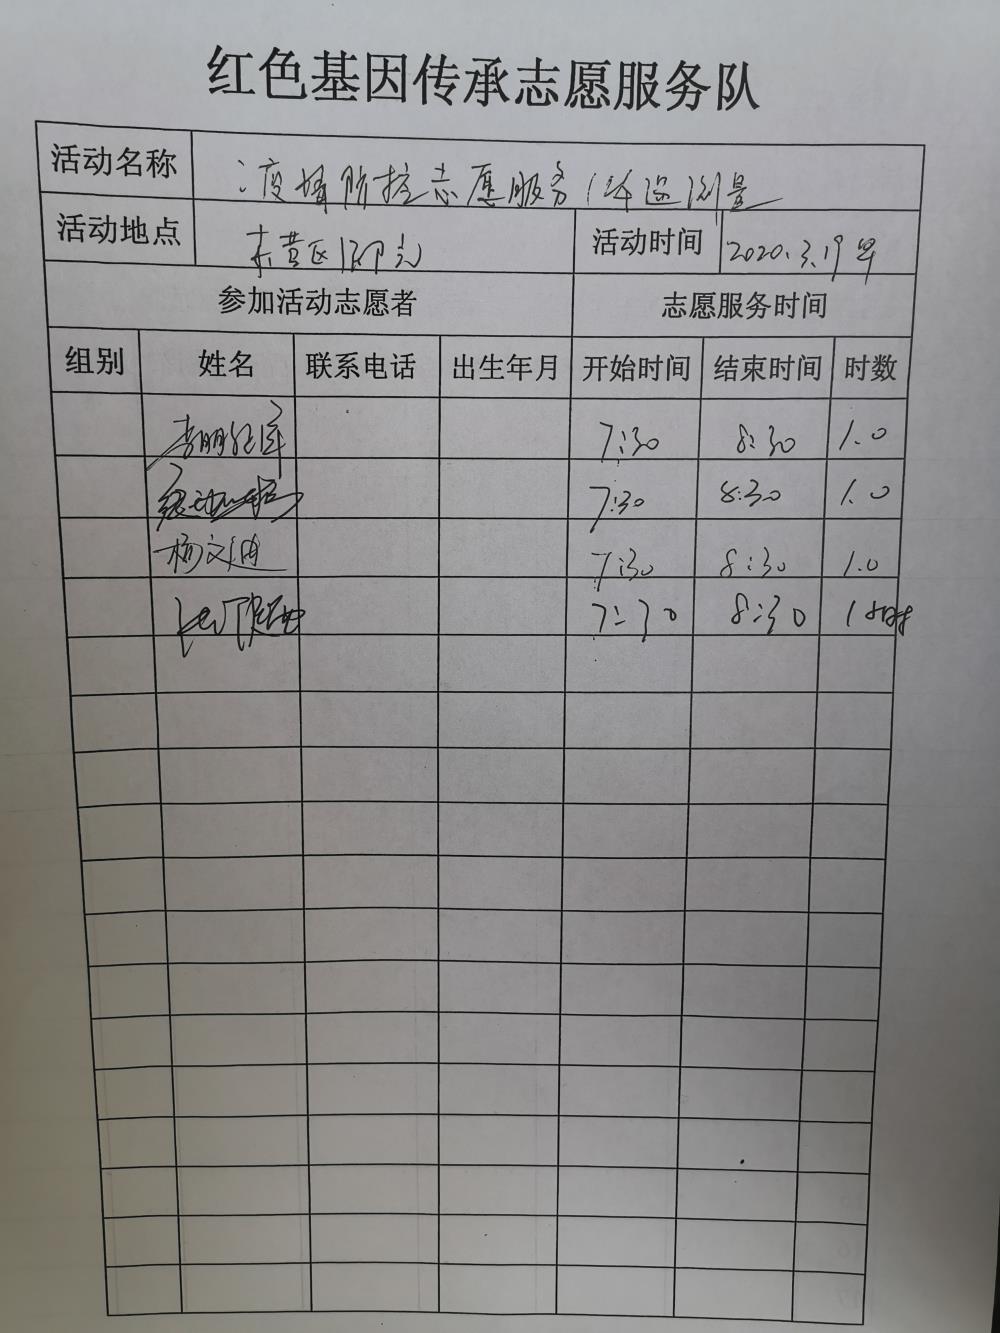 红色基因传承志愿服务队
活动名称 疫情防控志愿服务 体温测量
活动地点 活动时间 2020.3.19早
参加活动志愿者 志愿服务时间
组别 姓名 联系电话 出生年月 开始时间 结束时间 时数
7:30 8:30 1.0
7:30 8:30 1.0
杨文迪 7:30 8:30 1.0
7:30 8:30 1小时